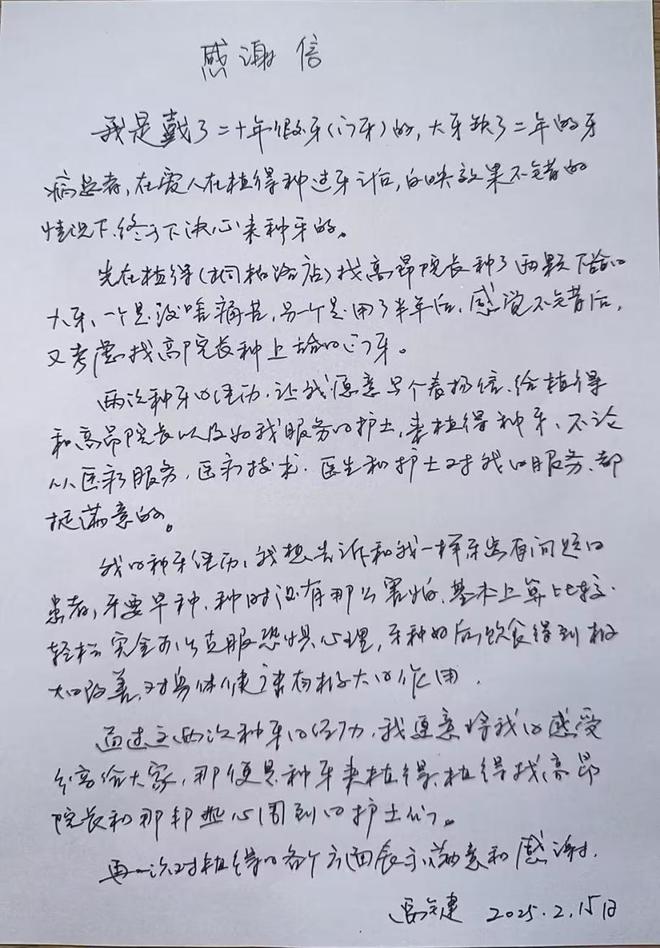 感谢信
我是戴了二十年假牙(门牙)的,大牙缺了二年的牙
病患者,在爱人在植得种过牙之后,反映效果不错的
情况下,终于下决心来种牙的。
先在植得(桐柏路店)找高昂院长种了两颗下船的
大牙、一个是没啥痛苦,另一个是用了半年后,感觉不错后,
又考虑找高院长种上船的门牙。
两次种牙的经历,让我愿意写个表扬信,给植得
和高昂院长以及为我服务的护士,来植得种牙、不论
从医疗服务,医疗技术、医生和护士对我的服务、都
挺满意的。
我的种牙经历,我想告诉和我一样牙患有问题的
患者,牙要早种,种时没有那么害怕,基本上算比较
轻松,完全可以克服恐惧心理,牙种好后饮食得到极
大的改善,对身体健康有极大的作用.
通过这两次种牙的经历,我愿意将我的感受
分享给大家,那便是种牙来植得,植得找高昂
院长和那群热心周到的护士们。
再一次对植得的各个方面表示满意和感谢.
2025.2.15日